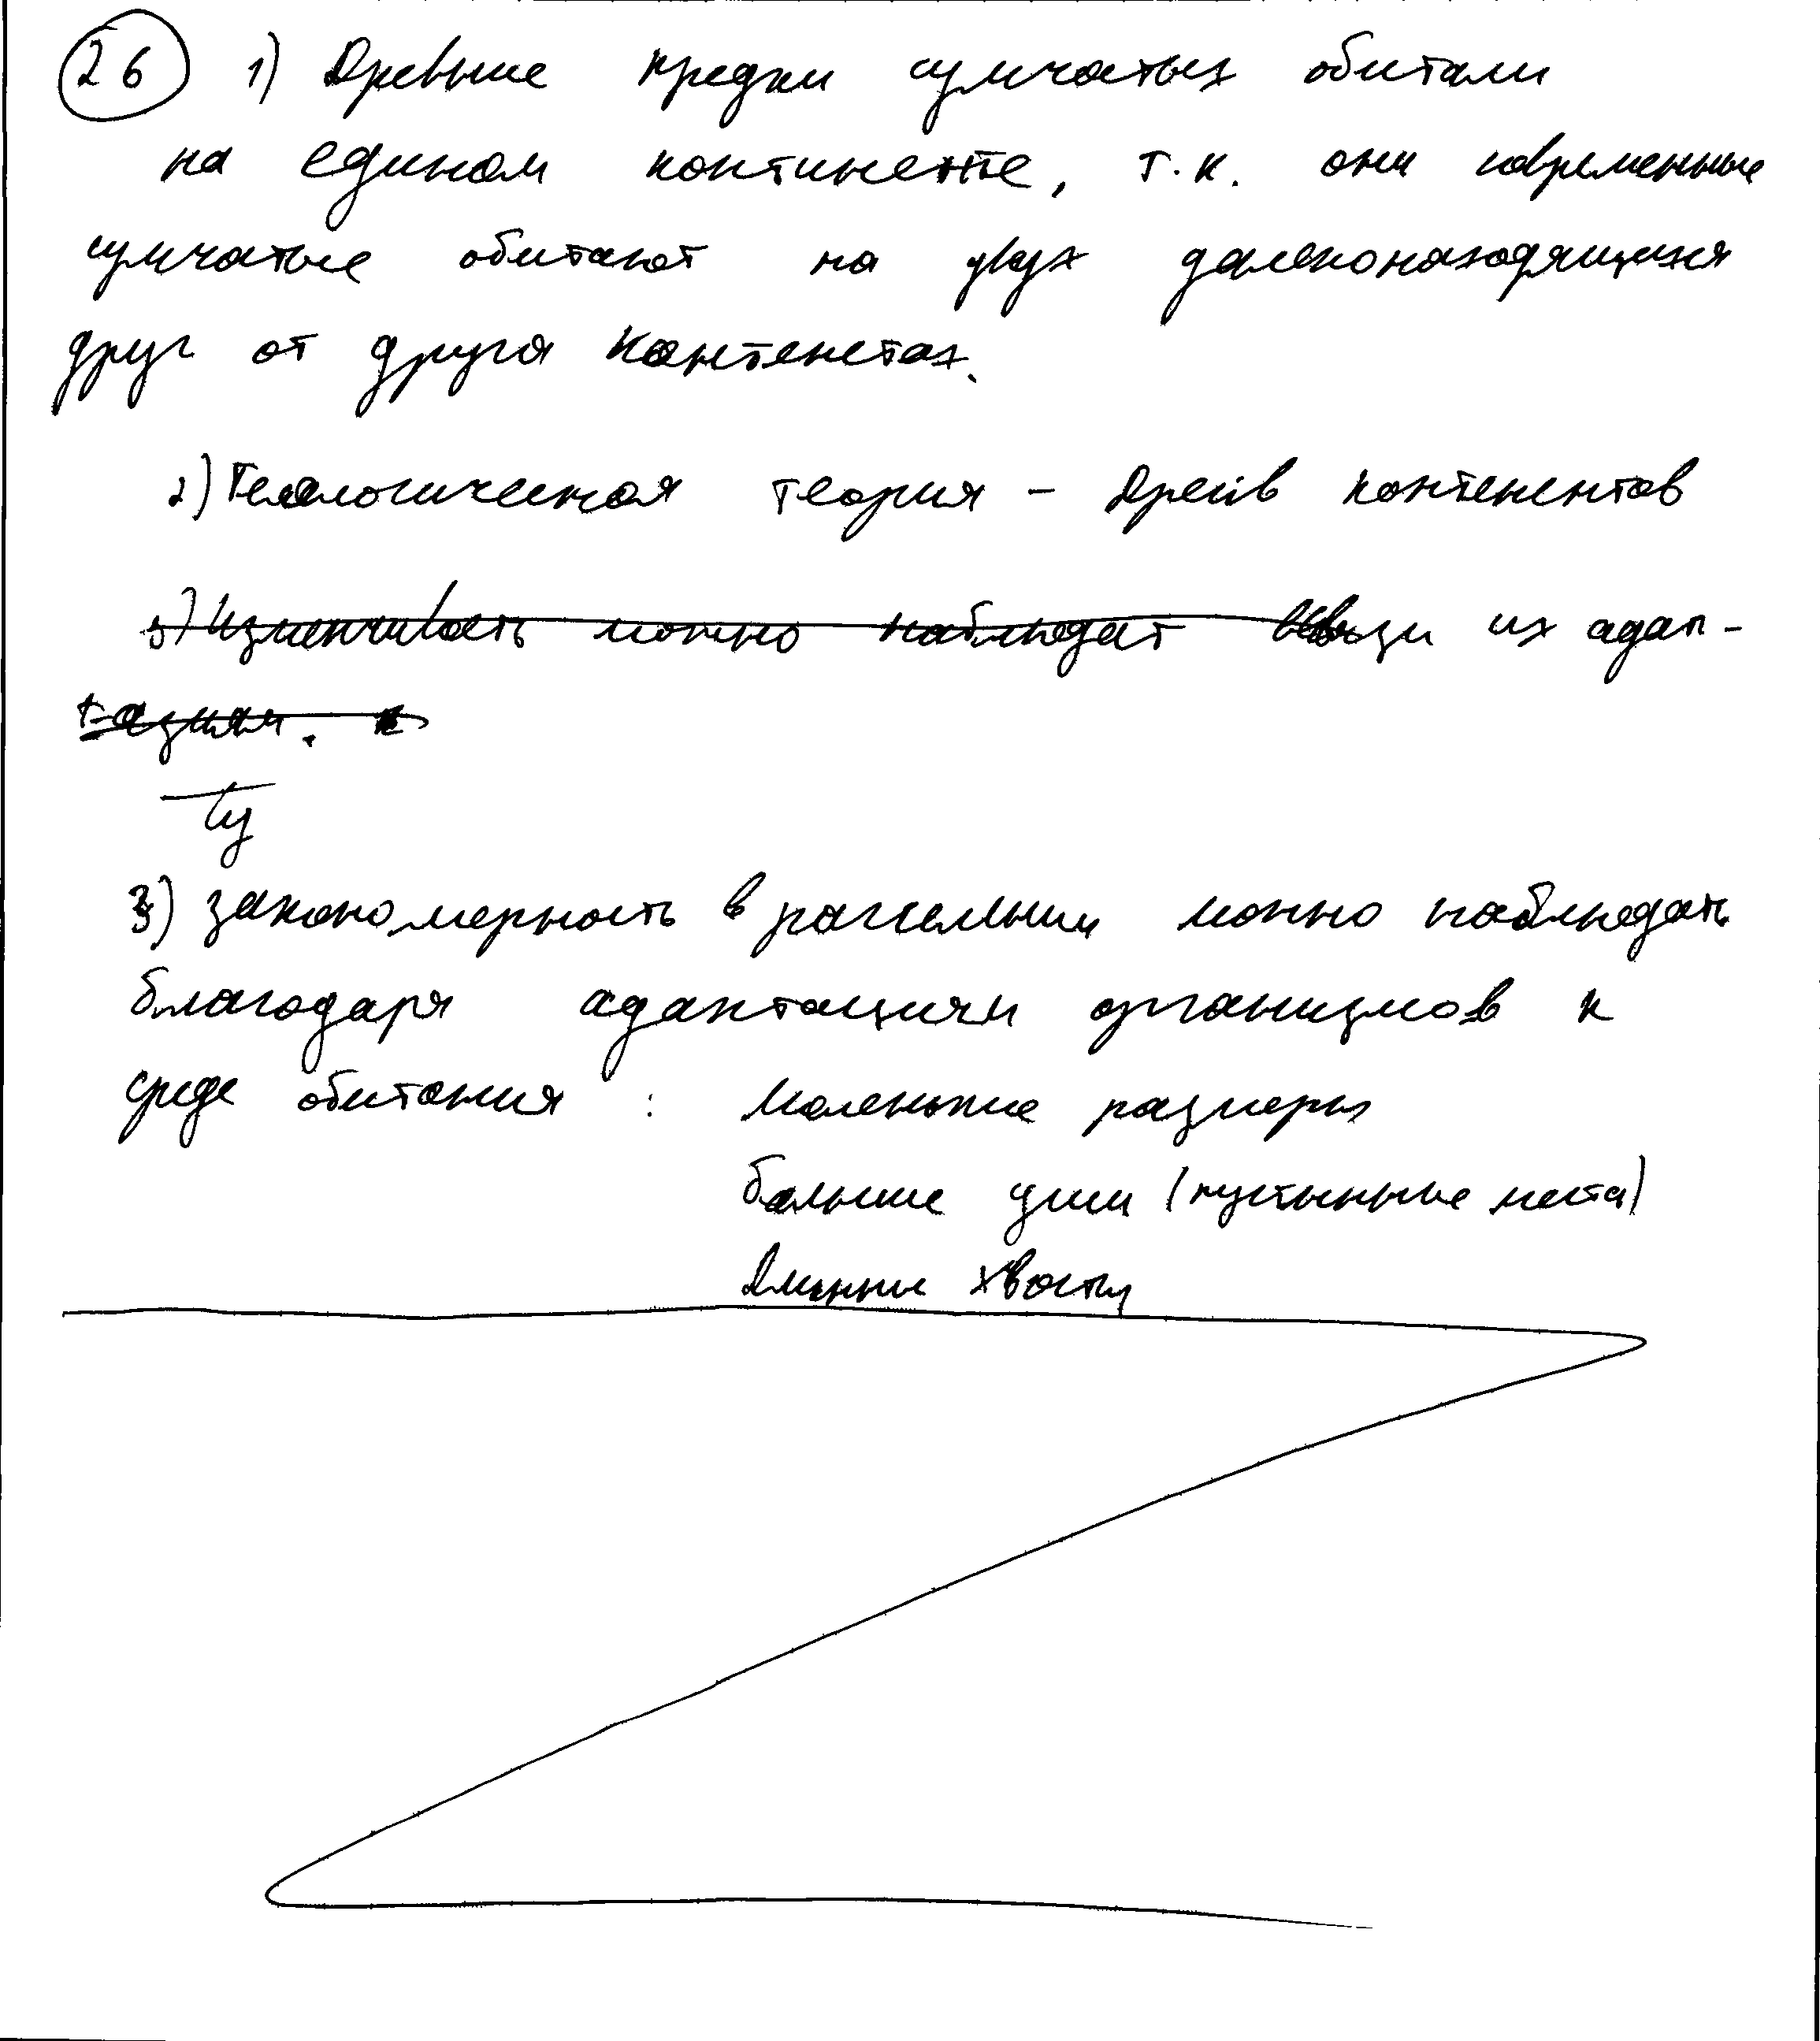 26 1) Древние предки сумчатых обитали
на едином континенте, т.к. они современные
сумчатые обитают на двух далеконаходящихся
друг от друга континетах.
2) Геологическая теория – Дрейв континентов
3) Изменчивость можно наблюдат их адап-
тациям.
3) закономерность в можно наблюдать
благодаря адаптациям организмов к
среде обитания : Маленькие размеры
большие уши (пустынные места)
Длинные хвосты